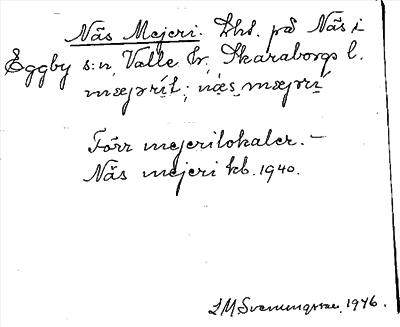 Näs Mejeri. Lht. på Näs i
Eggby s:n, Valle hr, Skaraborgs l.
mæjərít; næs mæjərí
Förr mejerilokaler. –
Näs mejeri kb. 1940.
I.M. Svenungsson, 1946.